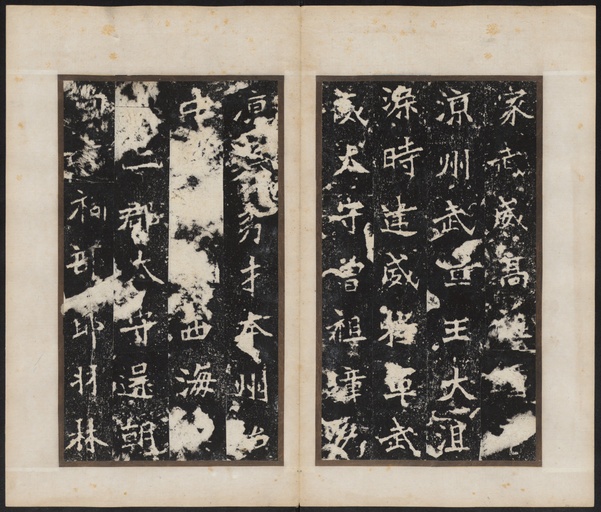 家武威高祖
涼州武宣王大沮
渠時建威將軍武
威太守曾祖璋偽
涼秀才本州治
中西海
二郡太守還朝
祠部郎羽林